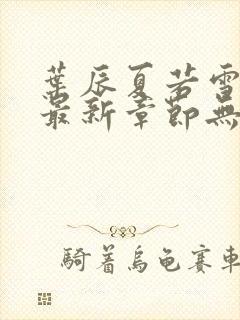 葉辰夏若雪
最新章節無
騎着烏龜賽車